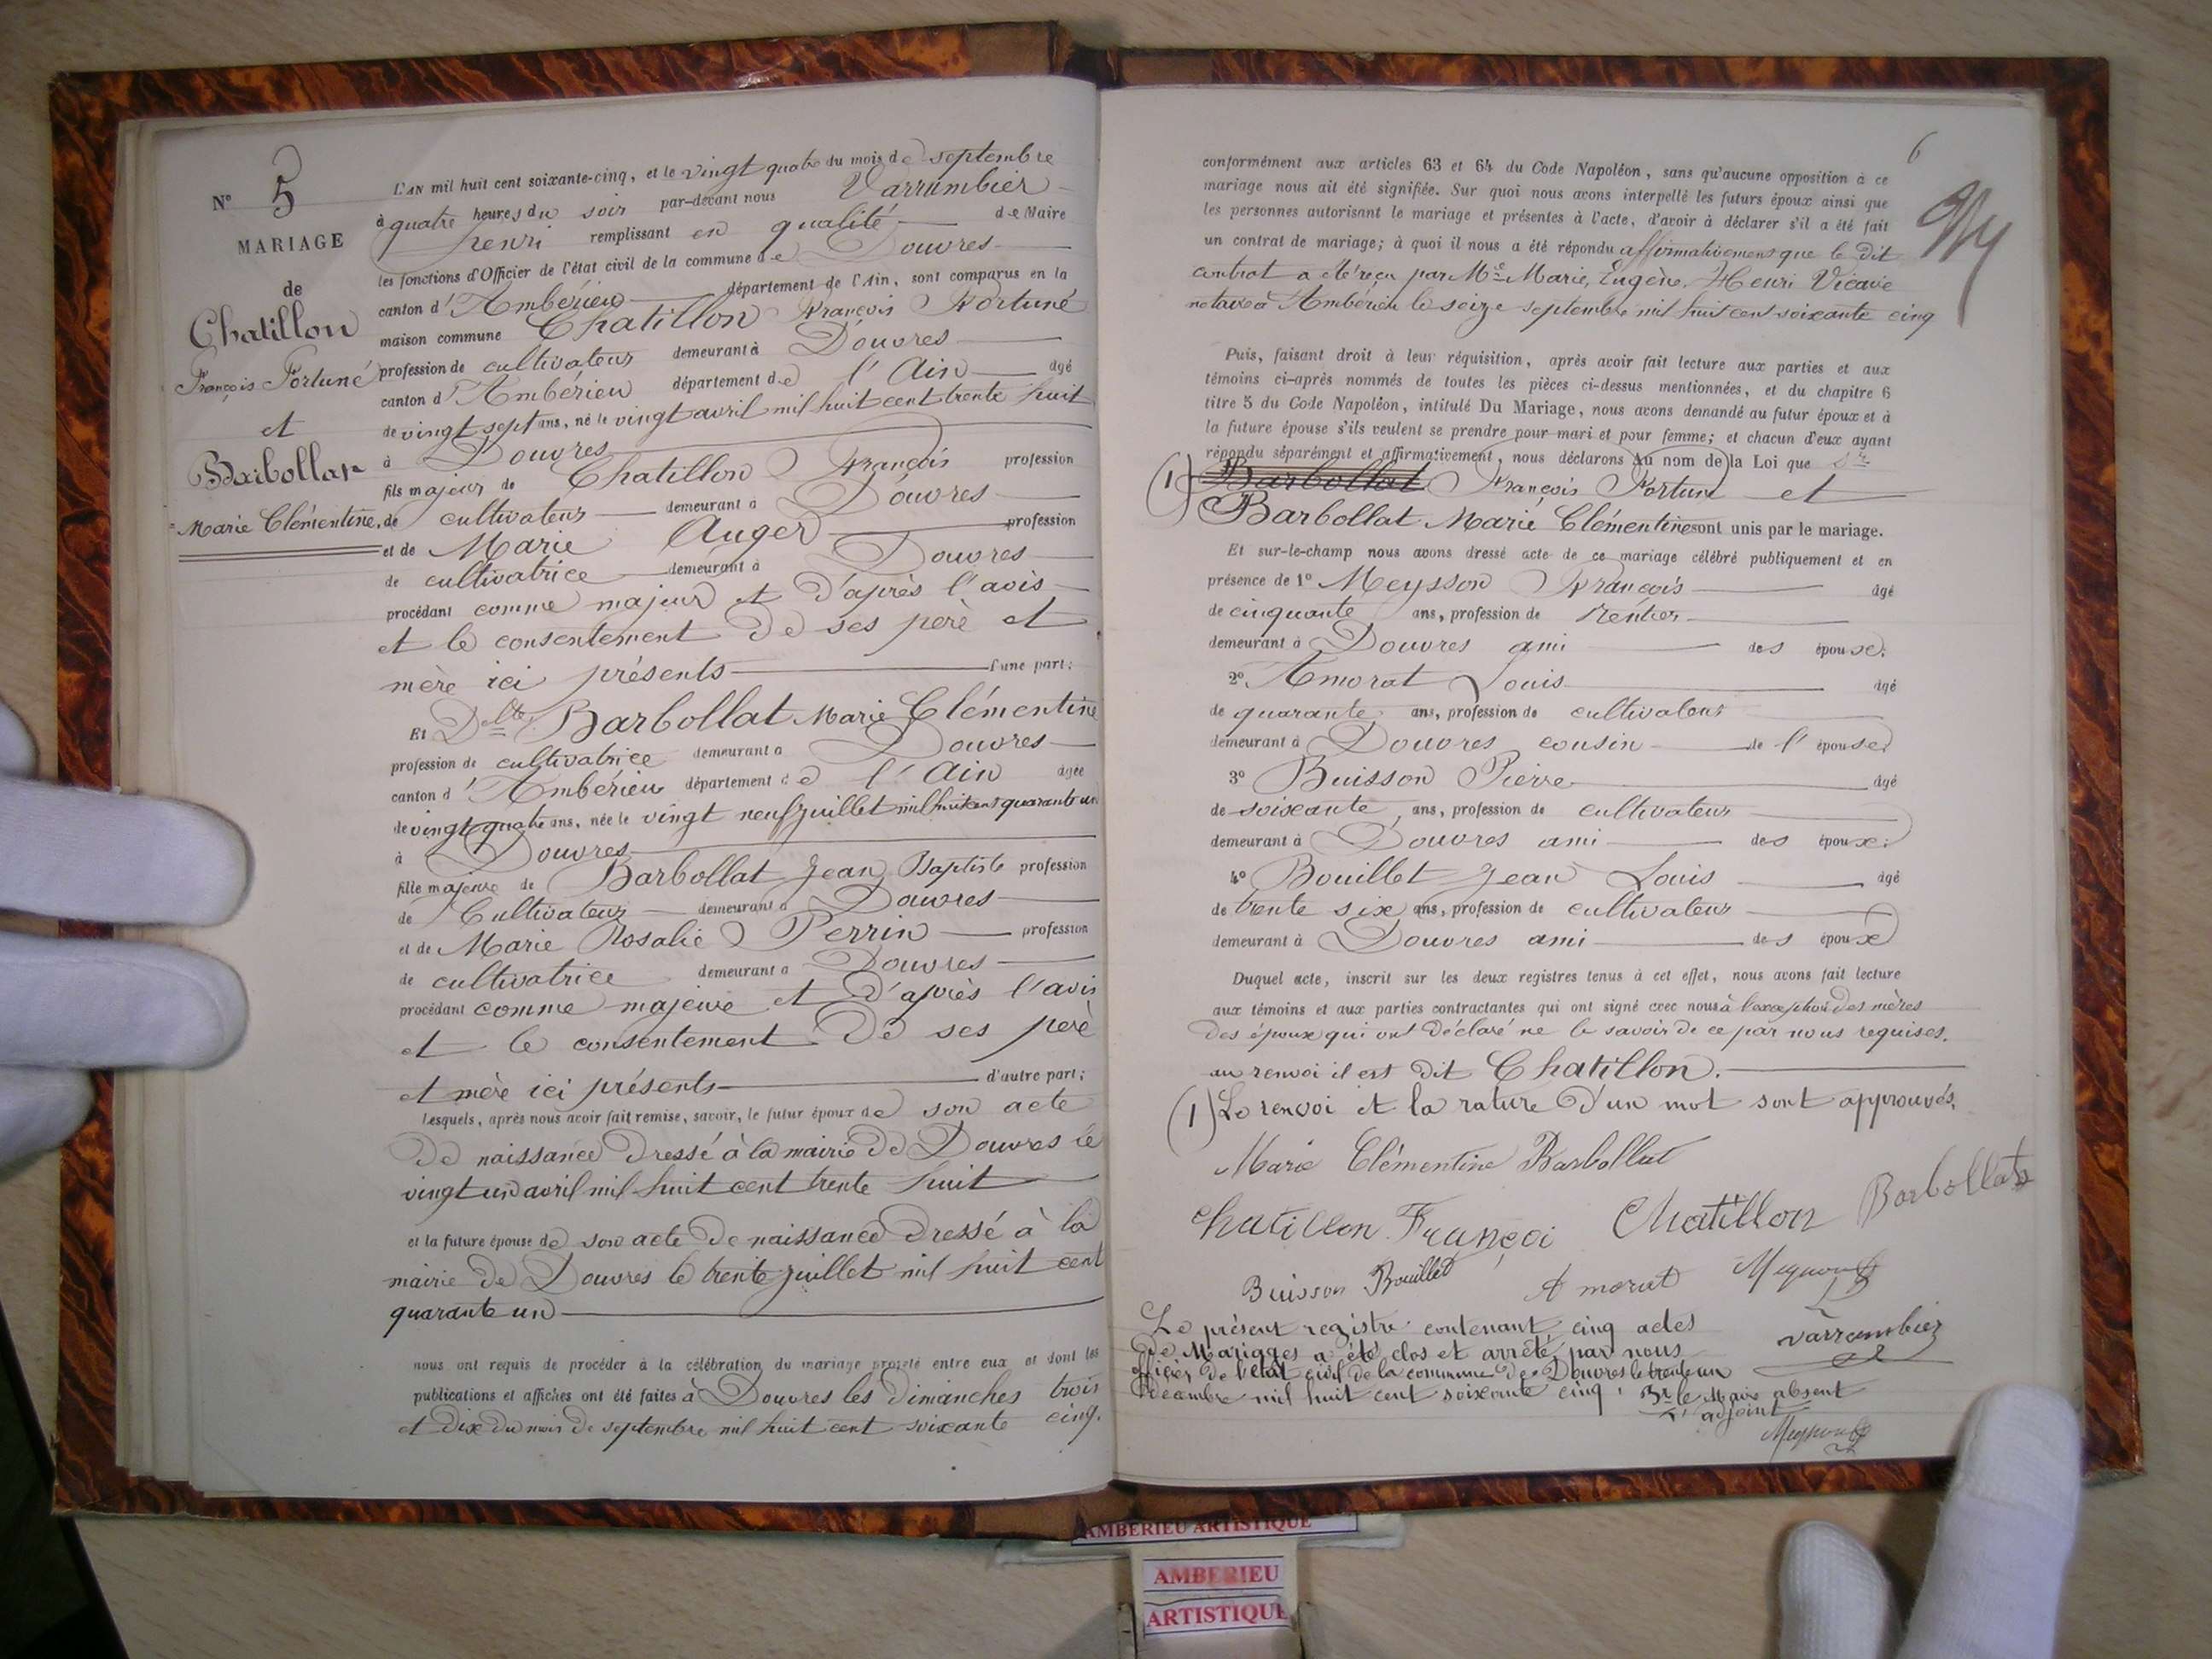 N° 5
MARIAGE
de
Chatillon
François Fortuné
et
Barbollat
Marie Clémentine.
L'AN mil huit cent soixante-cinq, et le vingt quatre du mois de septembre
à quatre heures du soir par-devant nous Varrambier
henri remplissant en qualité de Maire
les fonctions d'Officier de l'état civil de la commune de Douvres
canton d'Ambérieu département de l'Ain, sont comparus en la
maison commune Chatillon François Fortuné
profession de cultivateur demeurant à Douvres
canton d'Ambérieu département de l'Ain âgé
de vingt sept ans, né le vingt avril mil huit cent trente huit
à Douvres
fils majeur de Chatillon François profession
de cultivateur demeurant à Douvres
et de Marie Auger profession
de cultivatrice demeurant à Douvres
procédant comme majeur et d'après l'avis
et le consentement de ses père et
mère ici présents d'une part;
Et Dlle Barbollat Marie Clémentine
profession de cultivatrice demeurant à Douvres
canton d'Ambérieu département de l'Ain âgée
de vingt quatre ans, née le vingt neuf juillet mil huit cent quarante un
à Douvres
fille majeure de Barbollat Jean Baptiste profession
de Cultivateur demeurant à Douvres
et de Marie Rosalie Perrin profession
de cultivatrice demeurant à Douvres
procédant comme majeure et d'après l'avis
et le consentement de ses père
et mère ici présents d'autre part;
Lesquels, après nous avoir fait remise, savoir, le futur époux de son acte
de naissance dressé à la mairie de Douvres le
vingt un avril mil huit cent trente huit
et la future épouse de son acte de naissance dressé à la
mairie de Douvres le trente juillet mil huit cent
quarante un
nous ont requis de procéder à la célébration du mariage projeté entre eux et dont les
publications et affiches ont été faites à Douvres les dimanches trois
et dix du mois de septembre mil huit cent soixante cinq.
6
conformément aux articles 63 et 64 du Code Napoléon, sans qu'aucune opposition à ce
mariage nous ait été signifiée. Sur quoi nous avons interpellé les futurs époux ainsi que
les personnes autorisant le mariage et présentes à l'acte, d'avoir à déclarer s'il a été fait
un contrat de mariage; à quoi il nous a été répondu affirmativement que le dit
contrat a été reçu par Me Marie, Eugène, Henri Vicaire
notaire à Ambérieu le seize septembre mil huit cent soixante cinq
Puis, faisant droit à leur réquisition, après avoir fait lecture aux parties et aux
témoins ci-après nommés de toutes les pièces ci-dessus mentionnées, et du chapitre 6
titre 5 du Code Napoléon, intitulé Du Mariage, nous avons demandé au futur époux et à
la future épouse s'ils veulent se prendre pour mari et pour femme; et chacun d'eux ayant
répondu séparément et affirmativement, nous déclarons au nom de la Loi que Sr
(1) Barbollat François Fortuné et
Barbollat Marie Clémentine sont unis par le mariage.
Et sur-le-champ nous avons dressé acte de ce mariage célébré publiquement et en
présence de 1° Meysson François âgé
de cinquante ans, profession de rentier
demeurant à Douvres ami des époux.
2° Amorat Louis âgé
de quarante ans, profession de cultivateur
demeurant à Douvres cousin de l'épouse.
3° Buisson Pierre âgé
de soixante ans, profession de cultivateur
demeurant à Douvres ami des époux.
4° Bouillet Jean Louis âgé
de trente six ans, profession de cultivateur
demeurant à Douvres ami des époux
Duquel acte, inscrit sur les deux registres tenus à cet effet, nous avons fait lecture
aux témoins et aux parties contractantes qui ont signé avec nous à l'exception des mères
des époux qui ont déclaré ne le savoir de ce par nous requises.
au renvoi il est dit Chatillon.
(1) Le renvoi et la rature d'un mot sont approuvés.
Marie Clémentine Barbollat
chatillon Françoi Chatillon Barbollat
Buisson Bouillet Amorat
Le présent registre contenant cinq actes
de Mariages a été clos et arrêté par nous
officier de l'état civil de la commune de Douvres le trente un
décembre mil huit cent soixante cinq.
varrambier
Pr le Maire absent
L'adjoint
AMBERIEU ARTISTIQUE
AMBERIEU
ARTISTIQUE